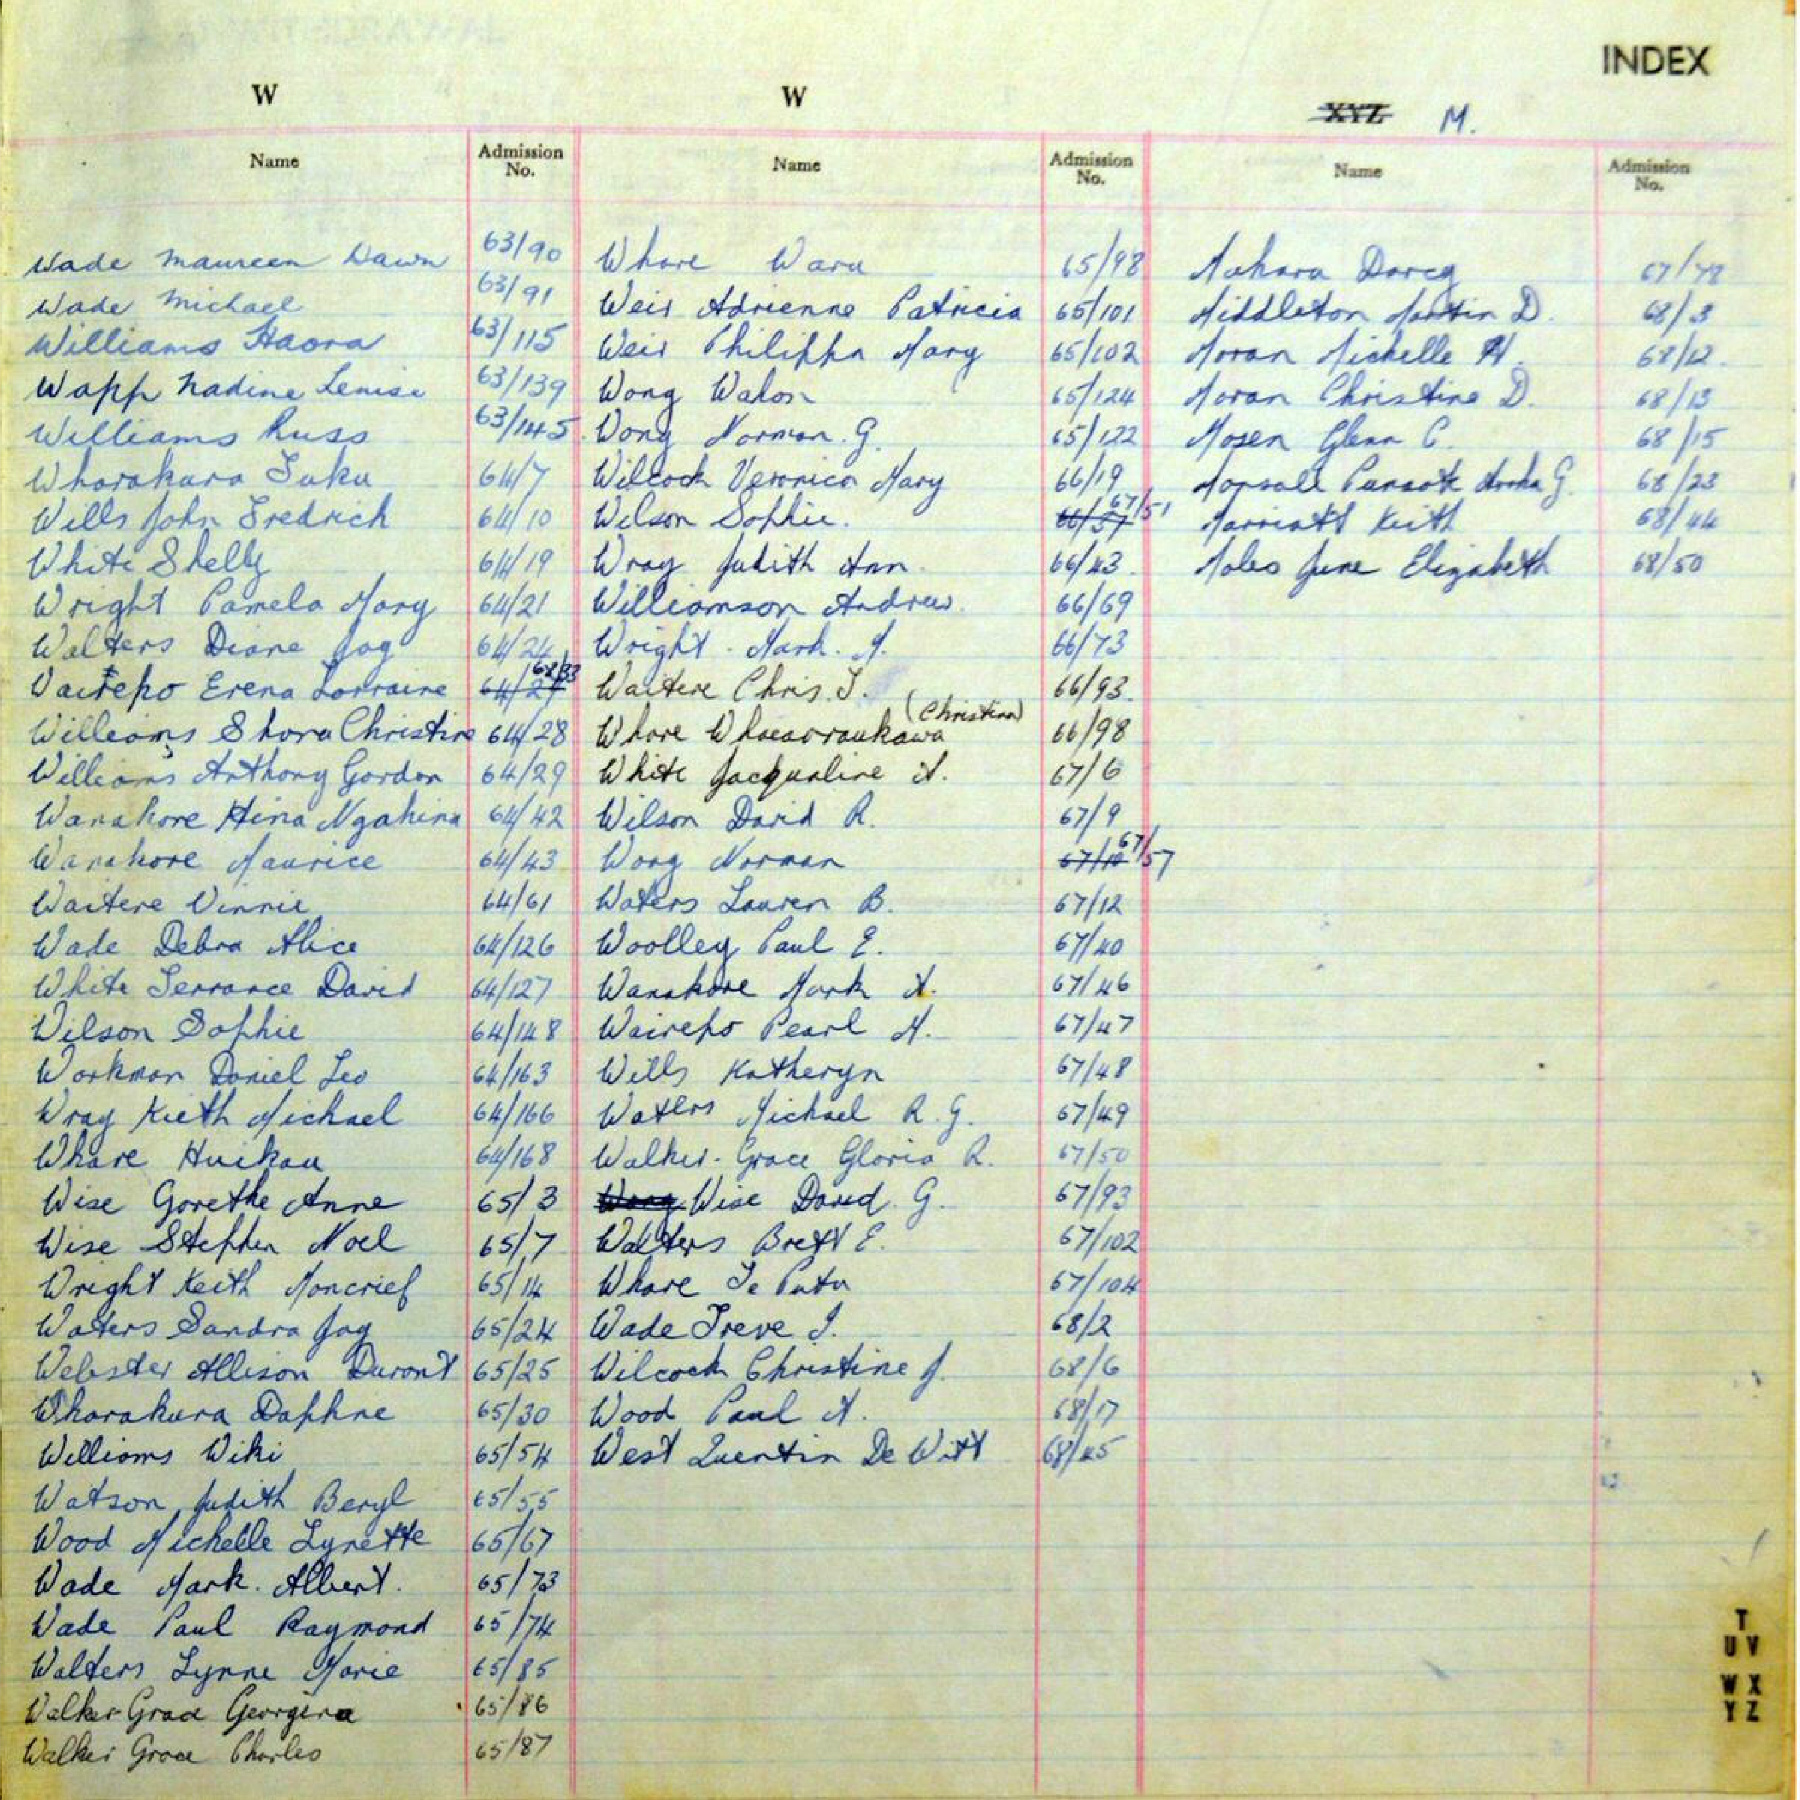 INDEX
W
Name Admission No.
Wade Maureen Dawn 63/90
Wade Michael 63/91
Williams Haora 63/115
Wapp Nadine Lenise 63/139
Williams Russ 63/145
Wharakura Tuku 64/7
Wills John Fredrich 64/10
White Shelly 64/19
Wright Pamela Mary 64/21
Walters Diane Joy 64/24
Wairepo Erena Lorraine 64/27 68/33
Williams Shona Christine 64/28
Williams Anthony Gordon 64/29
Wanakore Hina Ngahina 64/42
Wanakore Maurice 64/43
Waitere Vinnie 64/61
Wade Debra Alice 64/126
White Terrance David 64/127
Wilson Sophie 64/148
Workman Daniel Leo 64/163
Wray Kieth Michael 64/166
Whare Huikau 64/168
Wise Gorethe Anne 65/3
Wise Stephen Noel 65/7
Wright Keith Moncrief 65/14
Waters Sandra Joy 65/24
Webster Allison Duront 65/25
Wharakura Daphne 65/30
Williams Wiki 65/54
Watson Judith Beryl 65/55
Wood Michelle Lynette 65/67
Wade Mark. Albert. 65/73
Wade Paul Raymond 65/74
Walters Lynne Marie 65/85
Walker-Grace Georgina 65/86
Walker Grace Charles 65/87
W
Name Admission No.
Whare Waru 65/98
Weir Adrienne Patricia 65/101
Weir Philippa Mary 65/102
Wong Wahon 65/124
Wong Norman. G. 65/122
Wilcock Veronica Mary 66/19
Wilson Sophie. 66/37 67/51
Wray Judith Ann. 66/43.
Williamson Andrew. 66/69
Wright. Mark. A. 66/73
Waitere Chris. T. 66/93.
Whare (Christina) 66/98
White Jacqueline A. 67/6
Wilson David R. 67/9
Wong Norman 67/10 67/57
Waters Lauren B. 67/12
Woolley Paul E. 67/40
Wanakore Mark A. 67/46
Wairepo Pearl M. 67/47
Wills Katheryn 67/48
Waters Michael R. G. 67/49
Walker-Grace Gloria R. 67/50
Wong Wise David. G. 67/93
Walters Brett E. 67/102
Whare Te Putu 67/104
Wade Treve I. 68/2
Wilcock Christine J. 68/6
Wood Paul A. 68/17
West Quentin De Witt 68/45
XYZ M.
Name Admission No.
Mahara Darcy 67/78
Middleton Martin D. 68/3
Moran Michelle H. 68/12.
Moran Christine D. 68/13
Mosen Glenn C. 68/15
G. 68/23
Marriott Keith 68/44
Moles June Elizabeth 68/50
T
U V
W X
Y Z